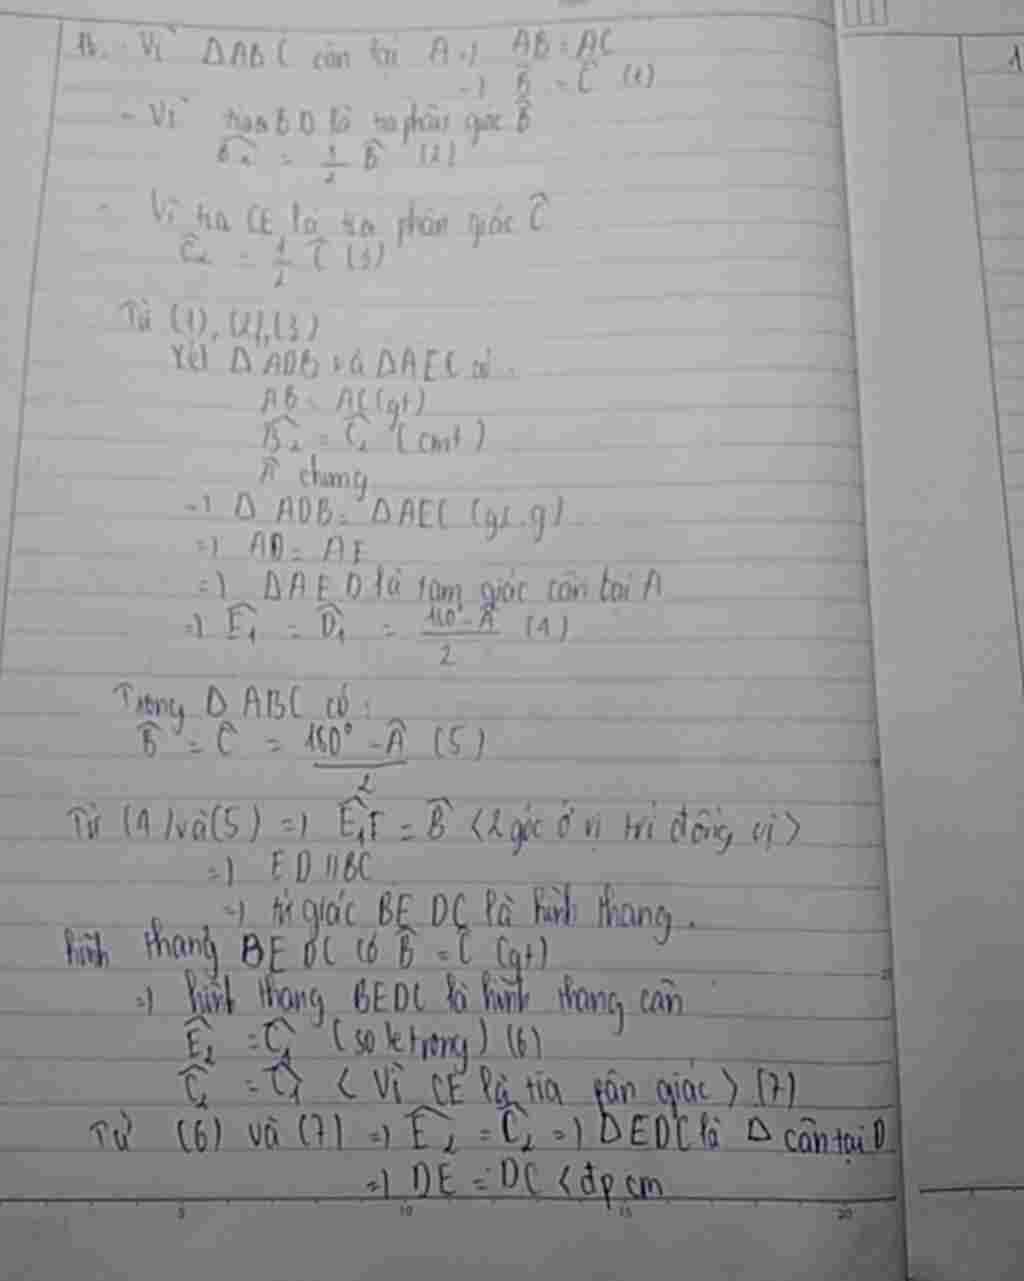 16. - Vì ΔABC cân tại A => AB = AC
=> B̂ = Ĉ (1)
- Vì tia BD là tia phân giác B̂
B̂₂ = 1/2 B̂ (2)
- Vì tia CE là tia phân giác Ĉ
Ĉ₂ = 1/2 Ĉ (3)
Từ (1), (2), (3)
Xét Δ ADB và ΔAEC có:
AB = AC (gt)
B̂₂ = Ĉ₂ (cmt)
Â chung
=> Δ ADB = ΔAEC (g.c.g)
=> AD = AE
=> ΔAED là tam giác cân tại A
=> Ê₁ = D̂₁ = (180° - Â)/2 (4)
Trong Δ ABC có:
B̂ = Ĉ = (180° - Â)/2 (5)
Từ (4) và (5) => Ê₁ = B̂ <2 góc ở vị trí đồng vị>
=> ED // BC
=> tứ giác BEDC là hình thang.
hình thang BEDC có B̂ = Ĉ (gt)
=> hình thang BEDC là hình thang cân
Ê₂ = Ĉ₁ (so le trong) (6)
Ĉ₂ = Ĉ₁ < Vì CE là tia phân giác > (7)
Từ (6) và (7) => Ê₂ = Ĉ₂ => ΔEDC là Δ cân tại D
=> DE = DC <đpcm
5 10 15 20